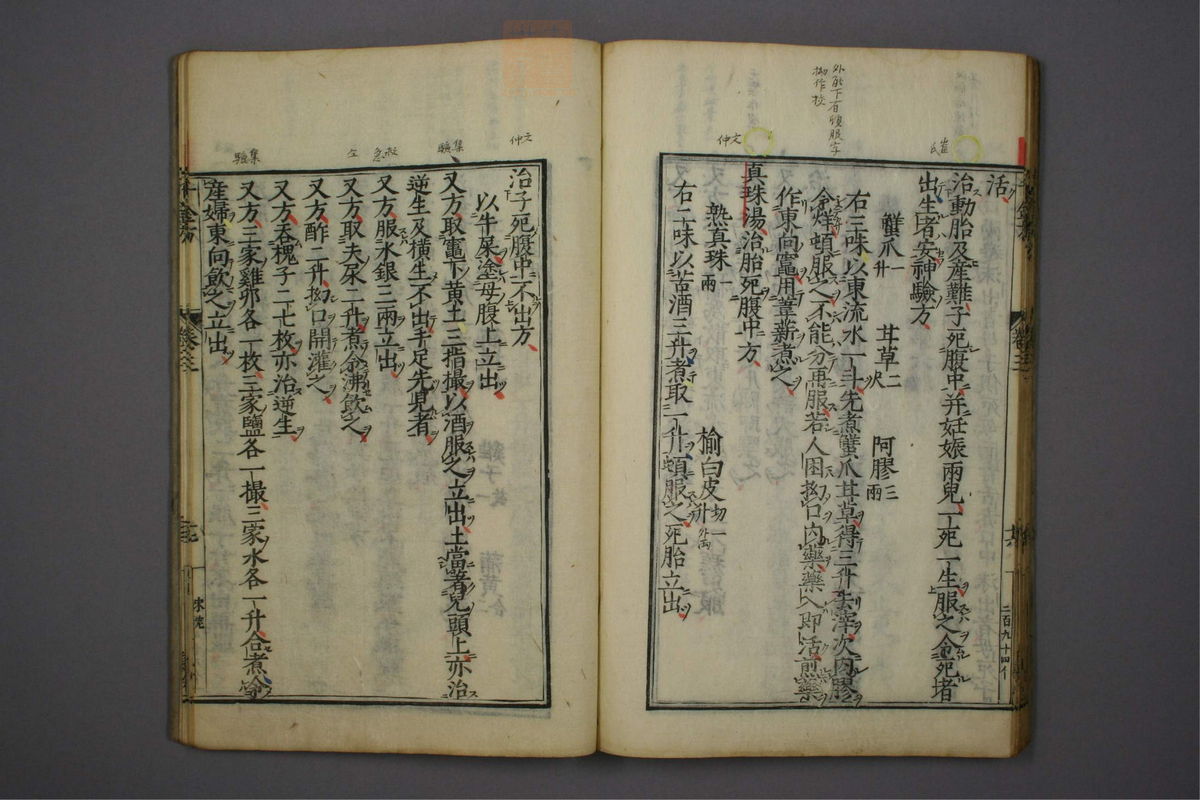 活
治動胎及産難子死腹中并妊娠兩兒一死一生服之令死者
出生者安神驗方
蟹爪一升 甘草二尺 阿膠三兩
右三味以東流水一斗先煮蟹爪甘草得三升去滓次内膠
令烊頓服之不能分再服若人困拗口内藥藥入即活煎藥
作東向竈用葦薪煮之
真珠湯治胎死腹中方
熟真珠一兩 榆白皮切一升
右二味以苦酒三升煮取一升頓服之死胎立出
治子死腹中不出方
以牛屎塗母腹上立出
又方取竈下黄土三指撮以酒服之立出土當著兒頭上亦治
逆生及横生不出手足先見者
又方服水銀三兩立出
又方取夫尿二升煮令沸飲之
又方酢二升拗口開灌之
又方吞槐子二七枚亦治逆生
又方三家雞卵各一枚三家鹽各一撮三家水各一升合煮令
産婦東向飲之立出
崔氏
外能下有頓服字
拗作挍
文仲
外兩
文仲
集驗
集驗
二百九十四